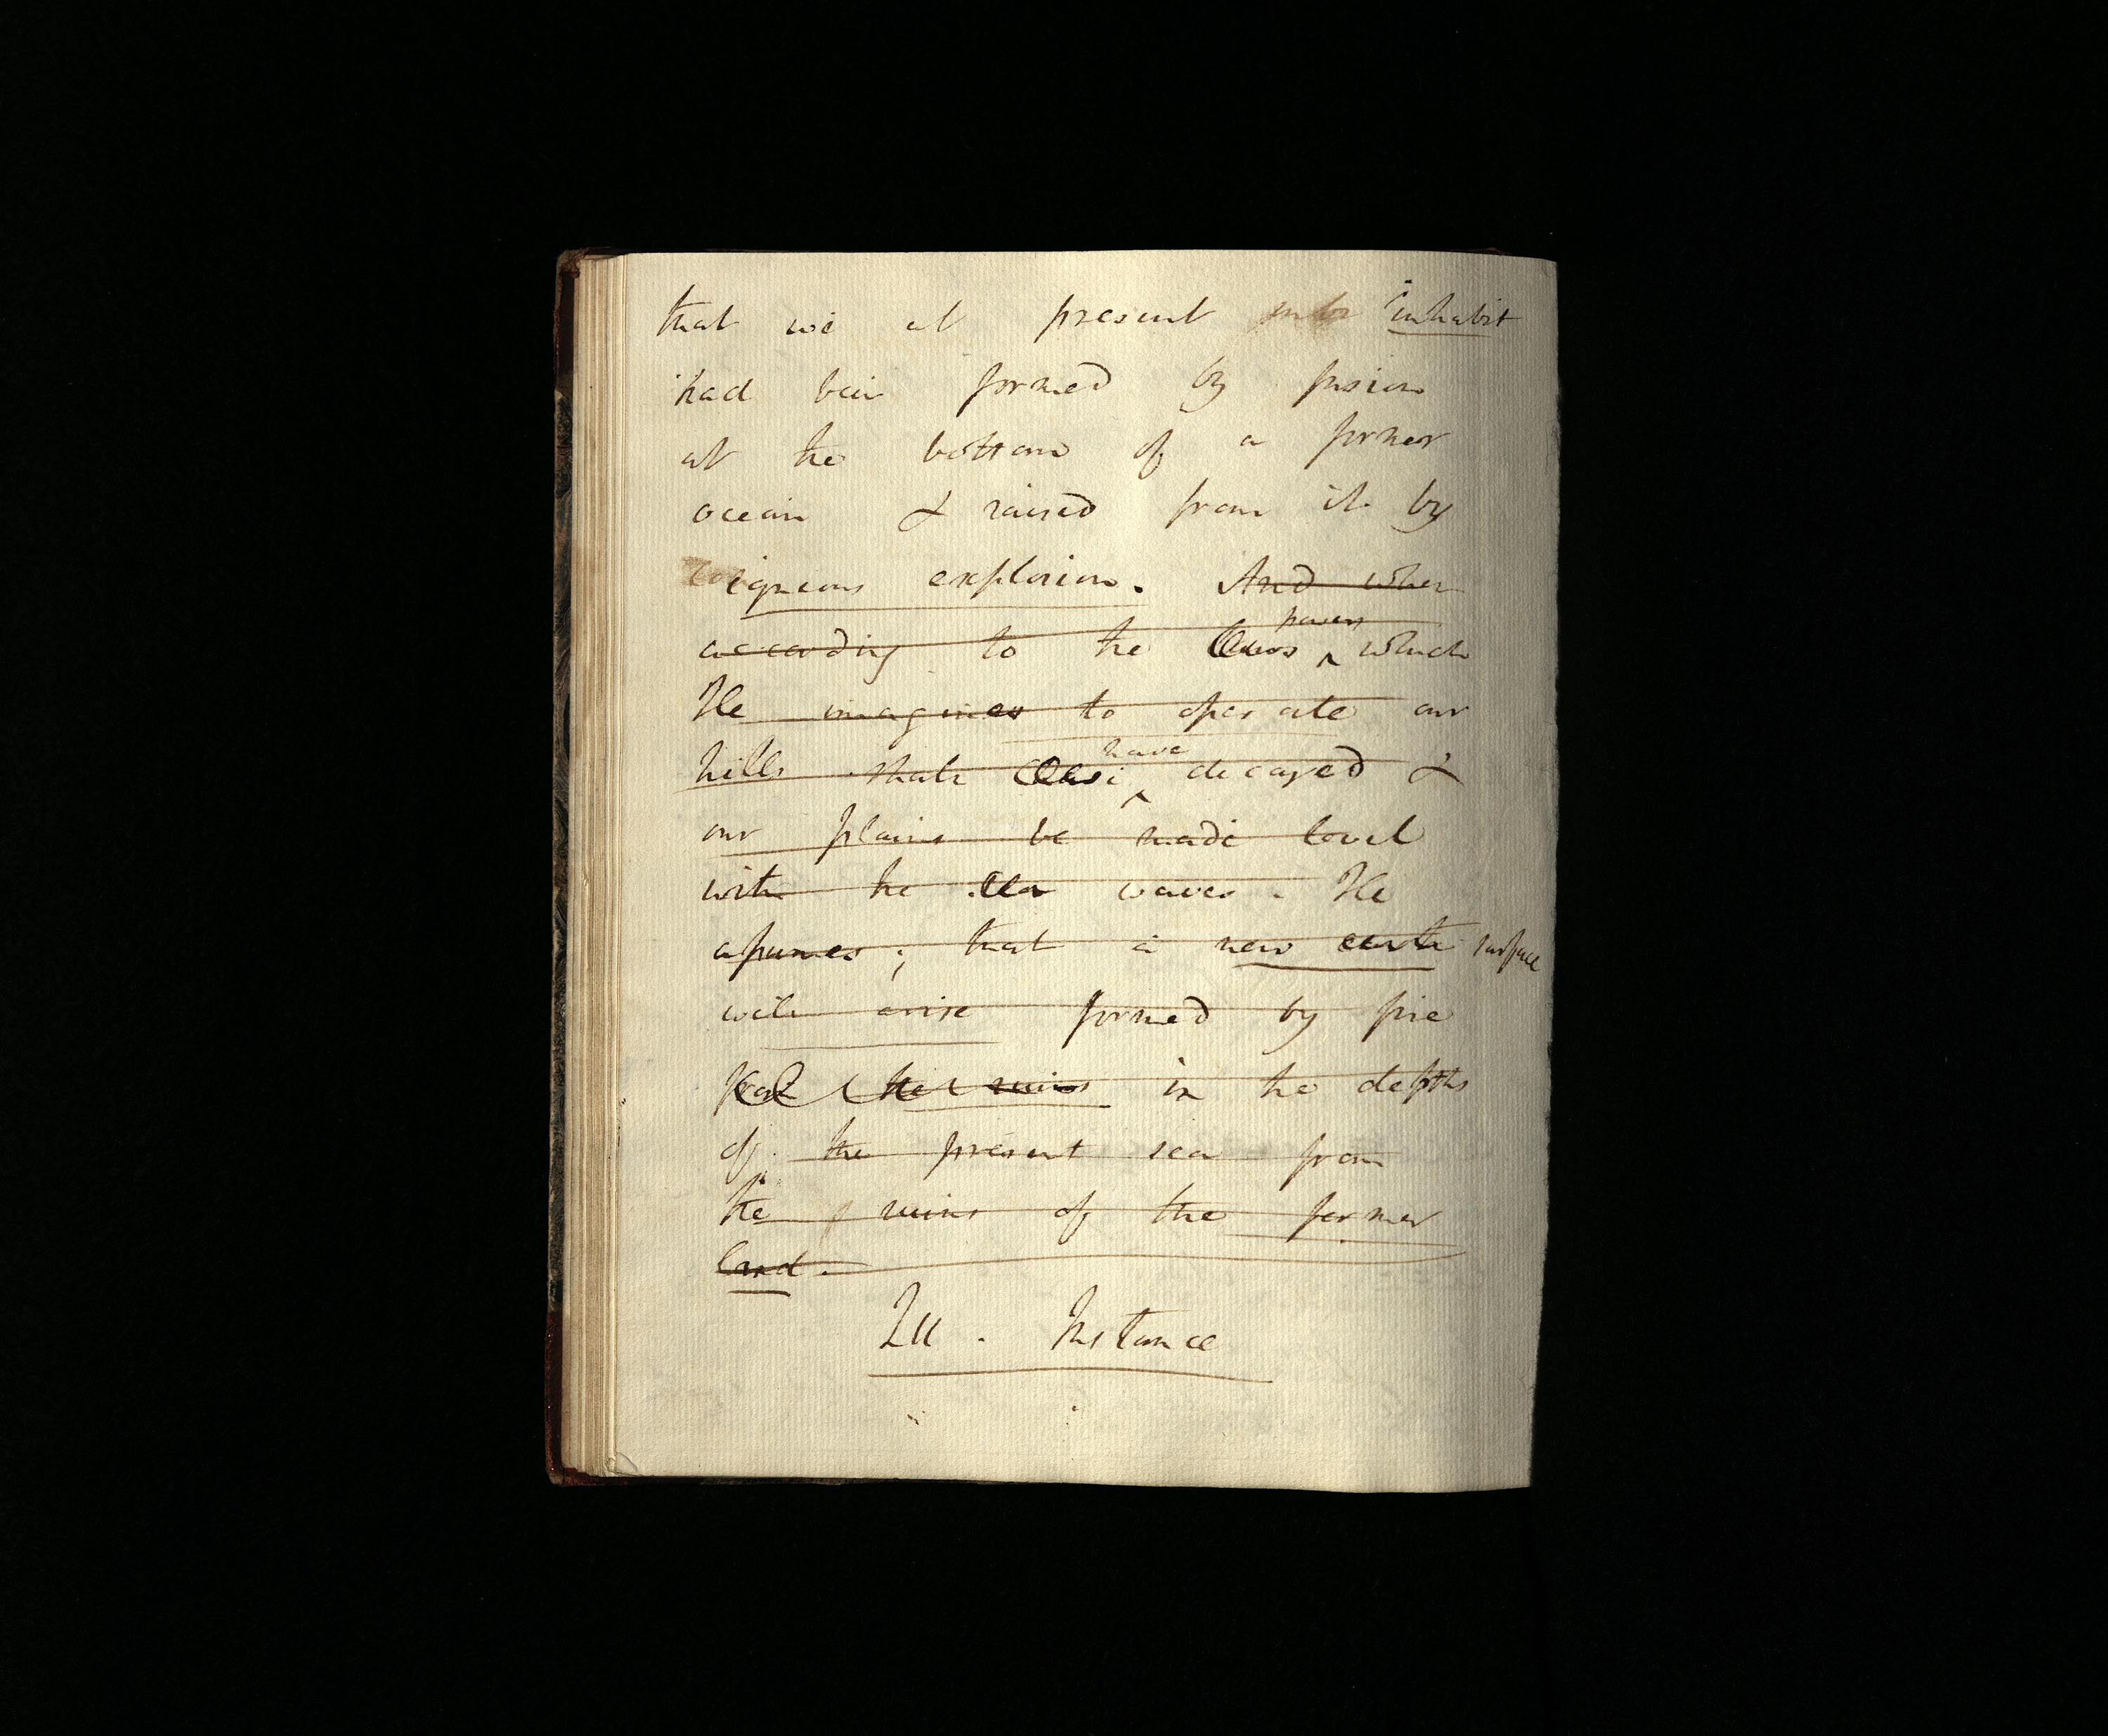 that we at present inhabit
had been formed by fusion
at the bottom of a former
ocean & raised from it by
igneous explosion. And when
according to the laws powers which
He imagines to operate our
hills shall have decayed &
our plains be made level
with the sea waves. He
assumes; that a new earth surface
will arise formed by fire
from the ruins in the depths
of the present sea from
the ruins of the former
land.
Instance